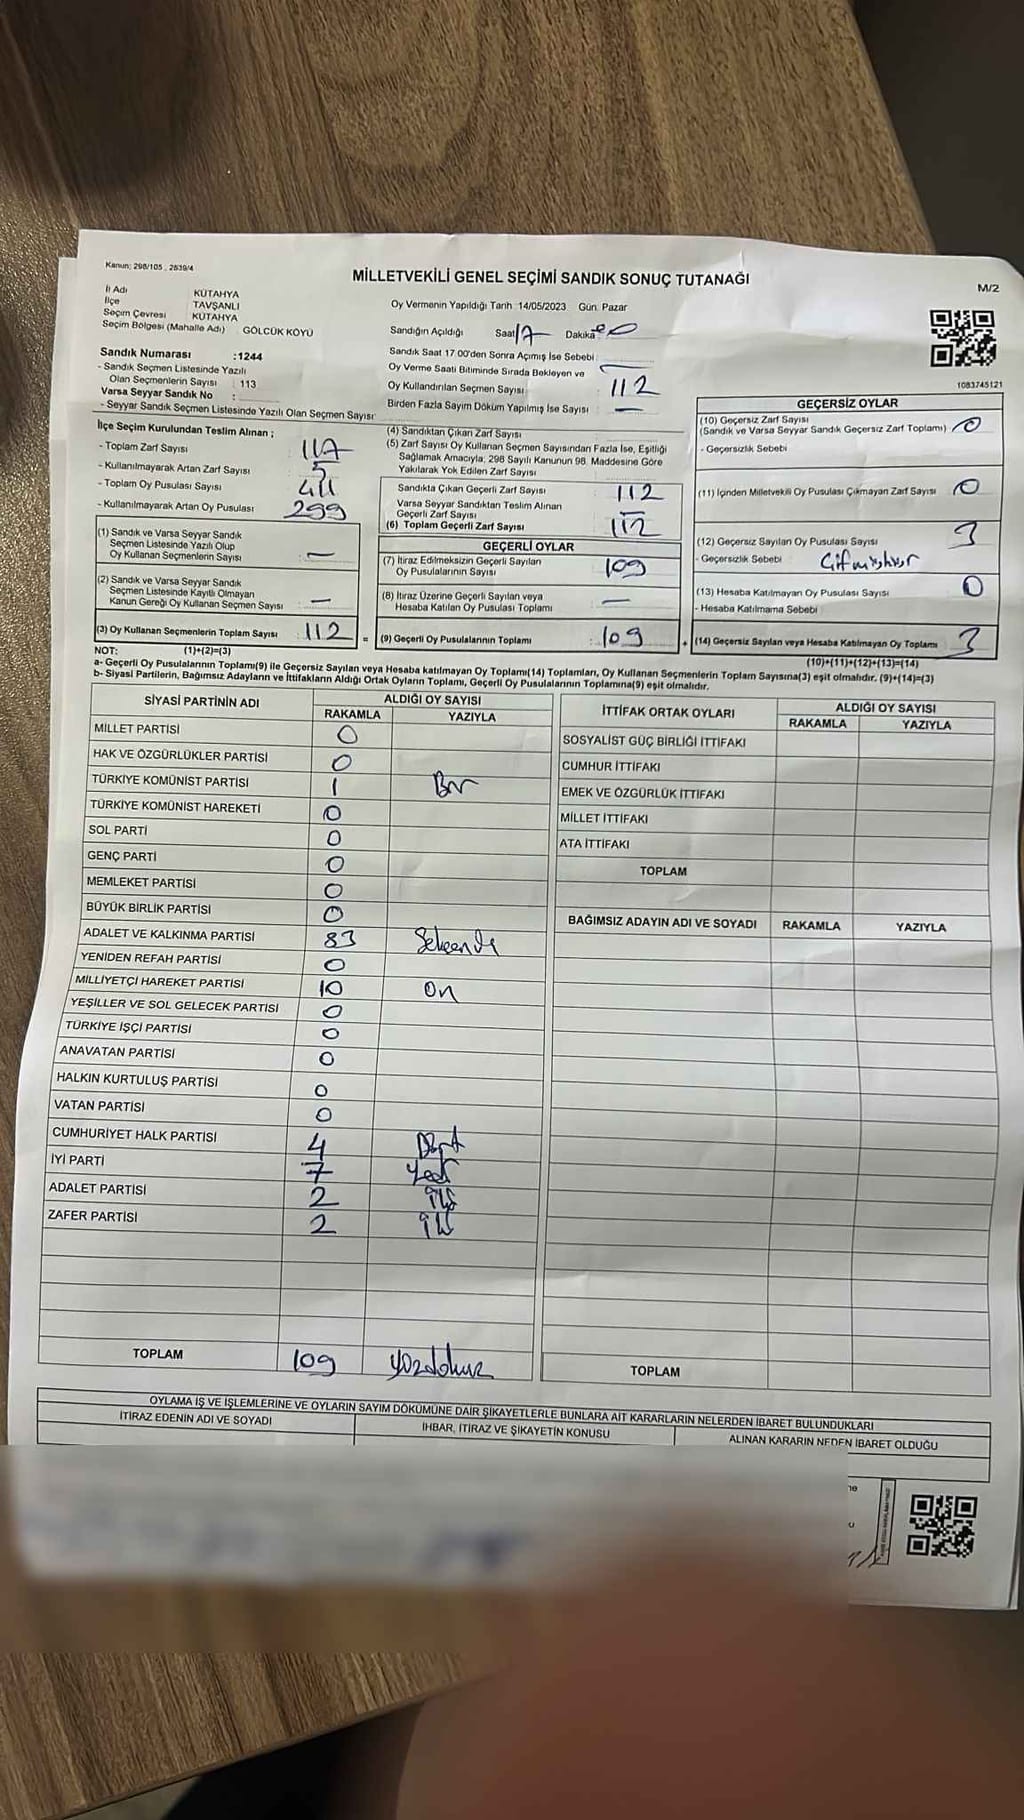 Kanun: 298/105 , 2839/4
MİLLETVEKİLİ GENEL SEÇİMİ SANDIK SONUÇ TUTANAĞI
M/2
İl Adı KÜTAHYA
İlçe TAVŞANLI
Seçim Çevresi KÜTAHYA
Seçim Bölgesi (Mahalle Adı) GÖLCÜK KÖYÜ
Sandık Numarası :1244
- Sandık Seçmen Listesinde Yazılı
Olan Seçmenlerin Sayısı : 113
Varsa Seyyar Sandık No :
- Seyyar Sandık Seçmen Listesinde Yazılı Olan Seçmen Sayısı
Oy Vermenin Yapıldığı Tarih :14/05/2023 Gün: Pazar
Sandığın Açıldığı Saat 17 Dakika
Sandık Saat 17.00'den Sonra Açılmış İse Sebebi :
Oy Verme Saati Bitiminde Sırada Bekleyen ve
Oy Kullandırılan Seçmen Sayısı 112
Birden Fazla Sayım Döküm Yapılmış İse Sayısı —
1083745121
İlçe Seçim Kurulundan Teslim Alınan ;
- Toplam Zarf Sayısı 117
- Kullanılmayarak Artan Zarf Sayısı 5
- Toplam Oy Pusulası Sayısı 411
- Kullanılmayarak Artan Oy Pusulası 299
(1) Sandık ve Varsa Seyyar Sandık
Seçmen Listesinde Yazılı Olup
Oy Kullanan Seçmenlerin Sayısı : —
(2) Sandık ve Varsa Seyyar Sandık
Seçmen Listesinde Kayıtlı Olmayan
Kanun Gereği Oy Kullanan Seçmen Sayısı : —
(3) Oy Kullanan Seçmenlerin Toplam Sayısı : 112 =
(4) Sandıktan Çıkan Zarf Sayısı
(5) Zarf Sayısı Oy Kullanan Seçmen Sayısından Fazla İse, Eşitliği
Sağlamak Amacıyla; 298 Sayılı Kanunun 98. Maddesine Göre
Yakılarak Yok Edilen Zarf Sayısı
Sandıkta Çıkan Geçerli Zarf Sayısı 112
Varsa Seyyar Sandıktan Teslim Alınan
Geçerli Zarf Sayısı —
(6) Toplam Geçerli Zarf Sayısı 112
GEÇERLİ OYLAR
(7) İtiraz Edilmeksizin Geçerli Sayılan
Oy Pusulalarının Sayısı : 109
(8) İtiraz Üzerine Geçerli Sayılan veya
Hesaba Katılan Oy Pusulası Toplamı : —
(9) Geçerli Oy Pusulalarının Toplamı : 109 +
GEÇERSİZ OYLAR
(10) Geçersiz Zarf Sayısı
(Sandık ve Varsa Seyyar Sandık Geçersiz Zarf Toplamı) : 0
- Geçersizlik Sebebi
(11) İçinden Milletvekili Oy Pusulası Çıkmayan Zarf Sayısı : 0
(12) Geçersiz Sayılan Oy Pusulası Sayısı 3
- Geçersizlik Sebebi :
(13) Hesaba Katılmayan Oy Pusulası Sayısı 0
- Hesaba Katılmama Sebebi :
(14) Geçersiz Sayılan veya Hesaba Katılmayan Oy Toplamı 3
NOT: (1)+(2)=(3) (10)+(11)+(12)+(13)=(14)
a- Geçerli Oy Pusulalarının Toplamı(9) ile Geçersiz Sayılan veya Hesaba katılmayan Oy Toplamı(14) Toplamları, Oy Kullanan Seçmenlerin Toplam Sayısına(3) eşit olmalıdır. (9)+(14)=(3)
b- Siyasi Partilerin, Bağımsız Adayların ve İttifakların Aldığı Ortak Oyların Toplamı, Geçerli Oy Pusulalarının Toplamına(9) eşit olmalıdır.
SİYASİ PARTİNİN ADI ALDIĞI OY SAYISI
RAKAMLA YAZIYLA
MİLLET PARTİSİ 0
HAK VE ÖZGÜRLÜKLER PARTİSİ 0
TÜRKİYE KOMÜNİST PARTİSİ 1 Bir
TÜRKİYE KOMÜNİST HAREKETİ 0
SOL PARTİ 0
GENÇ PARTİ 0
MEMLEKET PARTİSİ 0
BÜYÜK BİRLİK PARTİSİ 0
ADALET VE KALKINMA PARTİSİ 83
YENİDEN REFAH PARTİSİ 0
MİLLİYETÇİ HAREKET PARTİSİ 10 on
YEŞİLLER VE SOL GELECEK PARTİSİ 0
TÜRKİYE İŞÇİ PARTİSİ 0
ANAVATAN PARTİSİ 0
HALKIN KURTULUŞ PARTİSİ 0
VATAN PARTİSİ 0
CUMHURİYET HALK PARTİSİ 4 Dört
İYİ PARTİ 7 Yedi
ADALET PARTİSİ 2 iki
ZAFER PARTİSİ 2 iki
TOPLAM 109 yüzdokuz
İTTİFAK ORTAK OYLARI ALDIĞI OY SAYISI
RAKAMLA YAZIYLA
SOSYALİST GÜÇ BİRLİĞİ İTTİFAKI
CUMHUR İTTİFAKI
EMEK VE ÖZGÜRLÜK İTTİFAKI
MİLLET İTTİFAKI
ATA İTTİFAKI
TOPLAM
BAĞIMSIZ ADAYIN ADI VE SOYADI RAKAMLA YAZIYLA
TOPLAM
OYLAMA İŞ VE İŞLEMLERİNE VE OYLARIN SAYIM DÖKÜMÜNE DAİR ŞİKAYETLERLE BUNLARA AİT KARARLARIN NELERDEN İBARET BULUNDUKLARI
İTİRAZ EDENİN ADI VE SOYADI İHBAR, İTİRAZ VE ŞİKAYETİN KONUSU ALINAN KARARIN NEDEN İBARET OLDUĞU